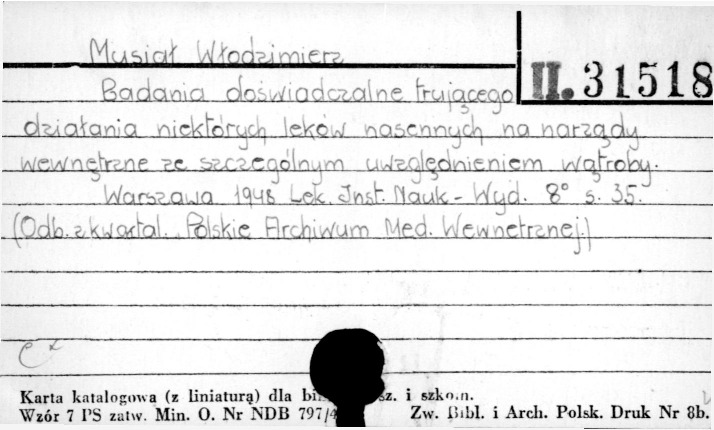 Musiał Włodzimierz
II. 31518
Badania doświadczalne trującego
działania niektórych leków nasennych na narządy
wewnętrzne ze szczególnym uwzględnieniem wątroby.
Warszawa 1948 Lek. Inst. Nauk - Wyd. 8° s. 35.
(Odb. z kwartal. Polskie Archiwum Med. Wewnetrznej.)
Karta katalogowa (z liniaturą) dla sz. i szkoln.
Wzór 7 PS zatw. Min. O. Nr NDB 797/4 Zw. Bibl. i Arch. Polsk. Druk Nr 8b.